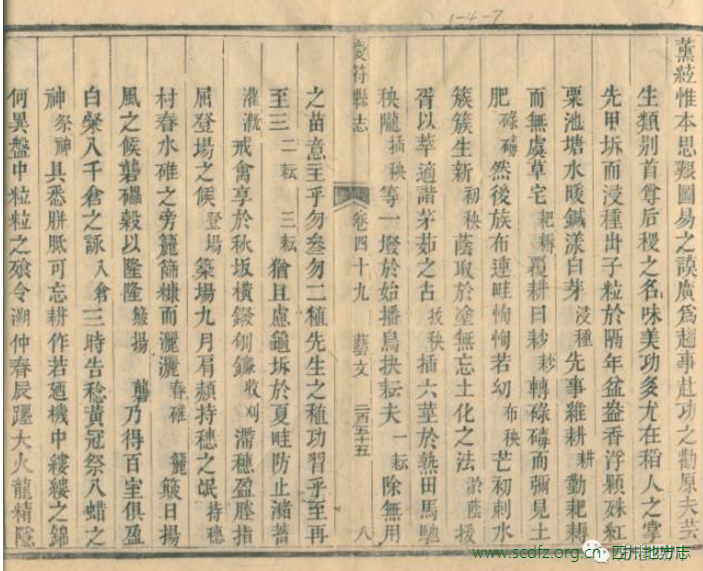 1-4-7
薰絃惟本思艱圖易之謨廣爲趨事赴功之勸原夫芸
生類別首尊后稷之名味美功多尤在稻人之掌
先甲坼而浸種出子粒於隔年盆盎香浮顆殊紅
粟池塘水暖鍼漾白芽浸種先事雜耕耕勤耙耨
而無虞草宅耙耨覆耕曰耖耖轉碌碡而彌見土
肥碌碡然後族布連畦恂恂若幼布秧芒初刺水
簇簇生新初秧蔭取於塗無忘土化之法淤蔭援
胥以萃適諧茅茹之古拔秧插六莖於熱田馬馳
秧隴插秧等一墢於始播鳥抉耘夫一耘除無用
慶符縣志
卷四十九
藝文
二百五十五
八
之苗意主乎勿叄勿二植先生之稙功習乎至再
至三二耘三耘猶且慮龜坼於夏畦防止潴蓄
灌溉戒禽享於秋坂橫鏺刎鐮收刈濡穗盈塍指
屈登場之候登場築場九月肩頳持穗之氓持穗
村舂水碓之旁簏篩糠而灑灑舂碓簏簸日揚
風之候礱礧穀以隆隆簸揚礱乃得百室俱盈
白粲入千倉之詠入倉三時告稔黃冠祭八蜡之
神祭神具悉胼胝可忘耕作若廼機中縷縷之錦
何異盤中粒粒之飧令溯仲春辰躔大火龍精陰
www.scdfz.org.cn
四川地方志